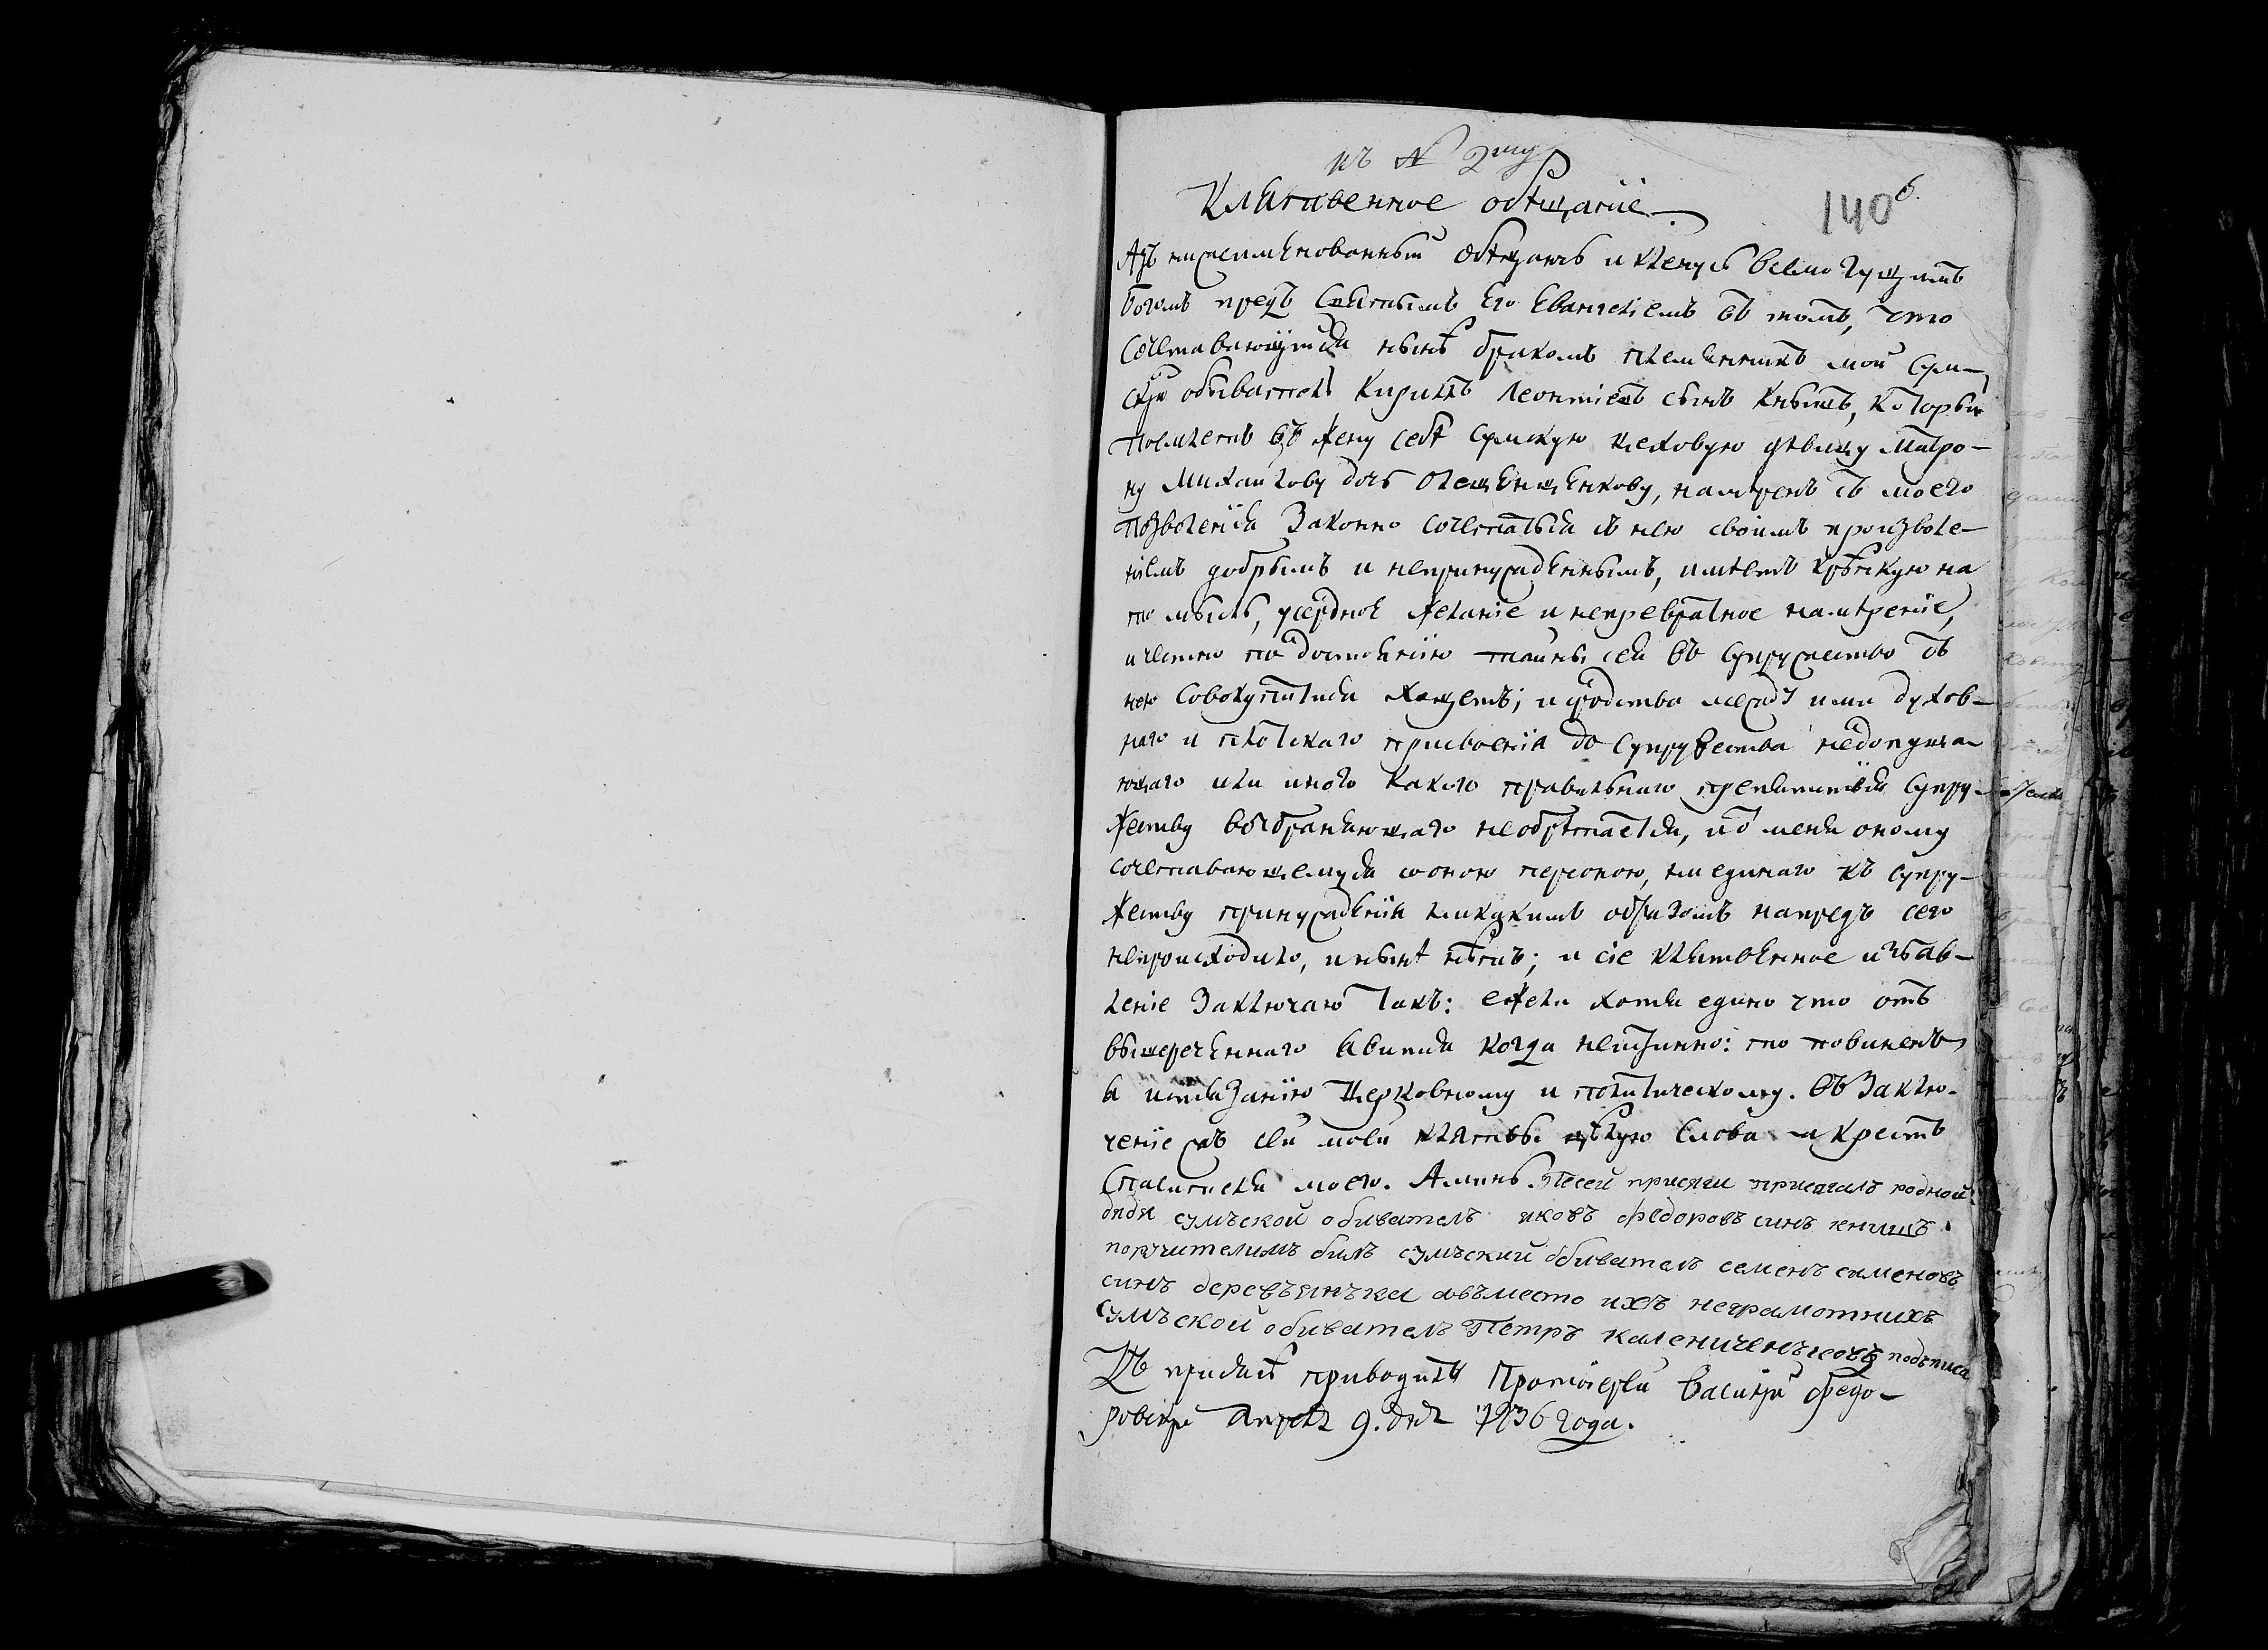 къ № 2му
Клятвенное обѣщанїе
140б
Азъ нижеименованный обѣщаюсь и кленуся всемогущимъ
Богомъ предъ святымъ его Евангелїемъ въ томъ, что
сочетавающїйся нынѣ бракомъ племянникъ мой сум-
скїй обыватель Кирилъ Леонтїевъ сынъ Кнышъ, который
поемлетъ въ жену себѣ сумскую цеховую дѣвицу Матро-
ну Михайлову дочь, намѣренъ съ моего
позволенїя законно сочетаться съ нею своимъ произволе-
нїемъ добрымъ и непринужденнымъ, имѣетъ крѣпкую на
то мысль, усердное желанїе и непревратное намѣренїе,
и честно по достоянїю тайны сея въ супружество съ
нею совокупитися хощетъ; и сродства между ими духов-
наго и плотскаго присвоенїя до супружества недопуща-
ющаго или иного какого правильнаго препятствїя супру-
жеству возбраняющаго необрѣтается, и отъ меня оному
сочетавающемуся со оною персоною, ни единаго къ супру-
жеству принужденїя никакимъ образомъ напредъ сего
непроисходило, и нынѣ нѣсть; и сїе клятвенное изъяв-
ленїе заключаю такъ: ежели хотя едино что отъ
вышереченнаго явится когда неистинно: то повиненъ
я истязанїю церковному и политическому. Въ заклю-
ченїе жъ сей моей клятвы цѣлую слова и крестъ
Спасителя моего. Аминь. Ксеи присяги присягалъ родной
дядя сумъской обивателъ яковъ федоровъ синъ книшъ
поручителимъ билъ сумъский обивателъ семенъ семеновъ
синъ деревъянъка авъместо ихъ неграмотнихъ
сумъской обивателъ Петръ каленичемъковъ подъписа
Къ присягѣ приводилъ Протоїерей Василїй Федо-
ровскїй апреля 9. дня 1836 года.